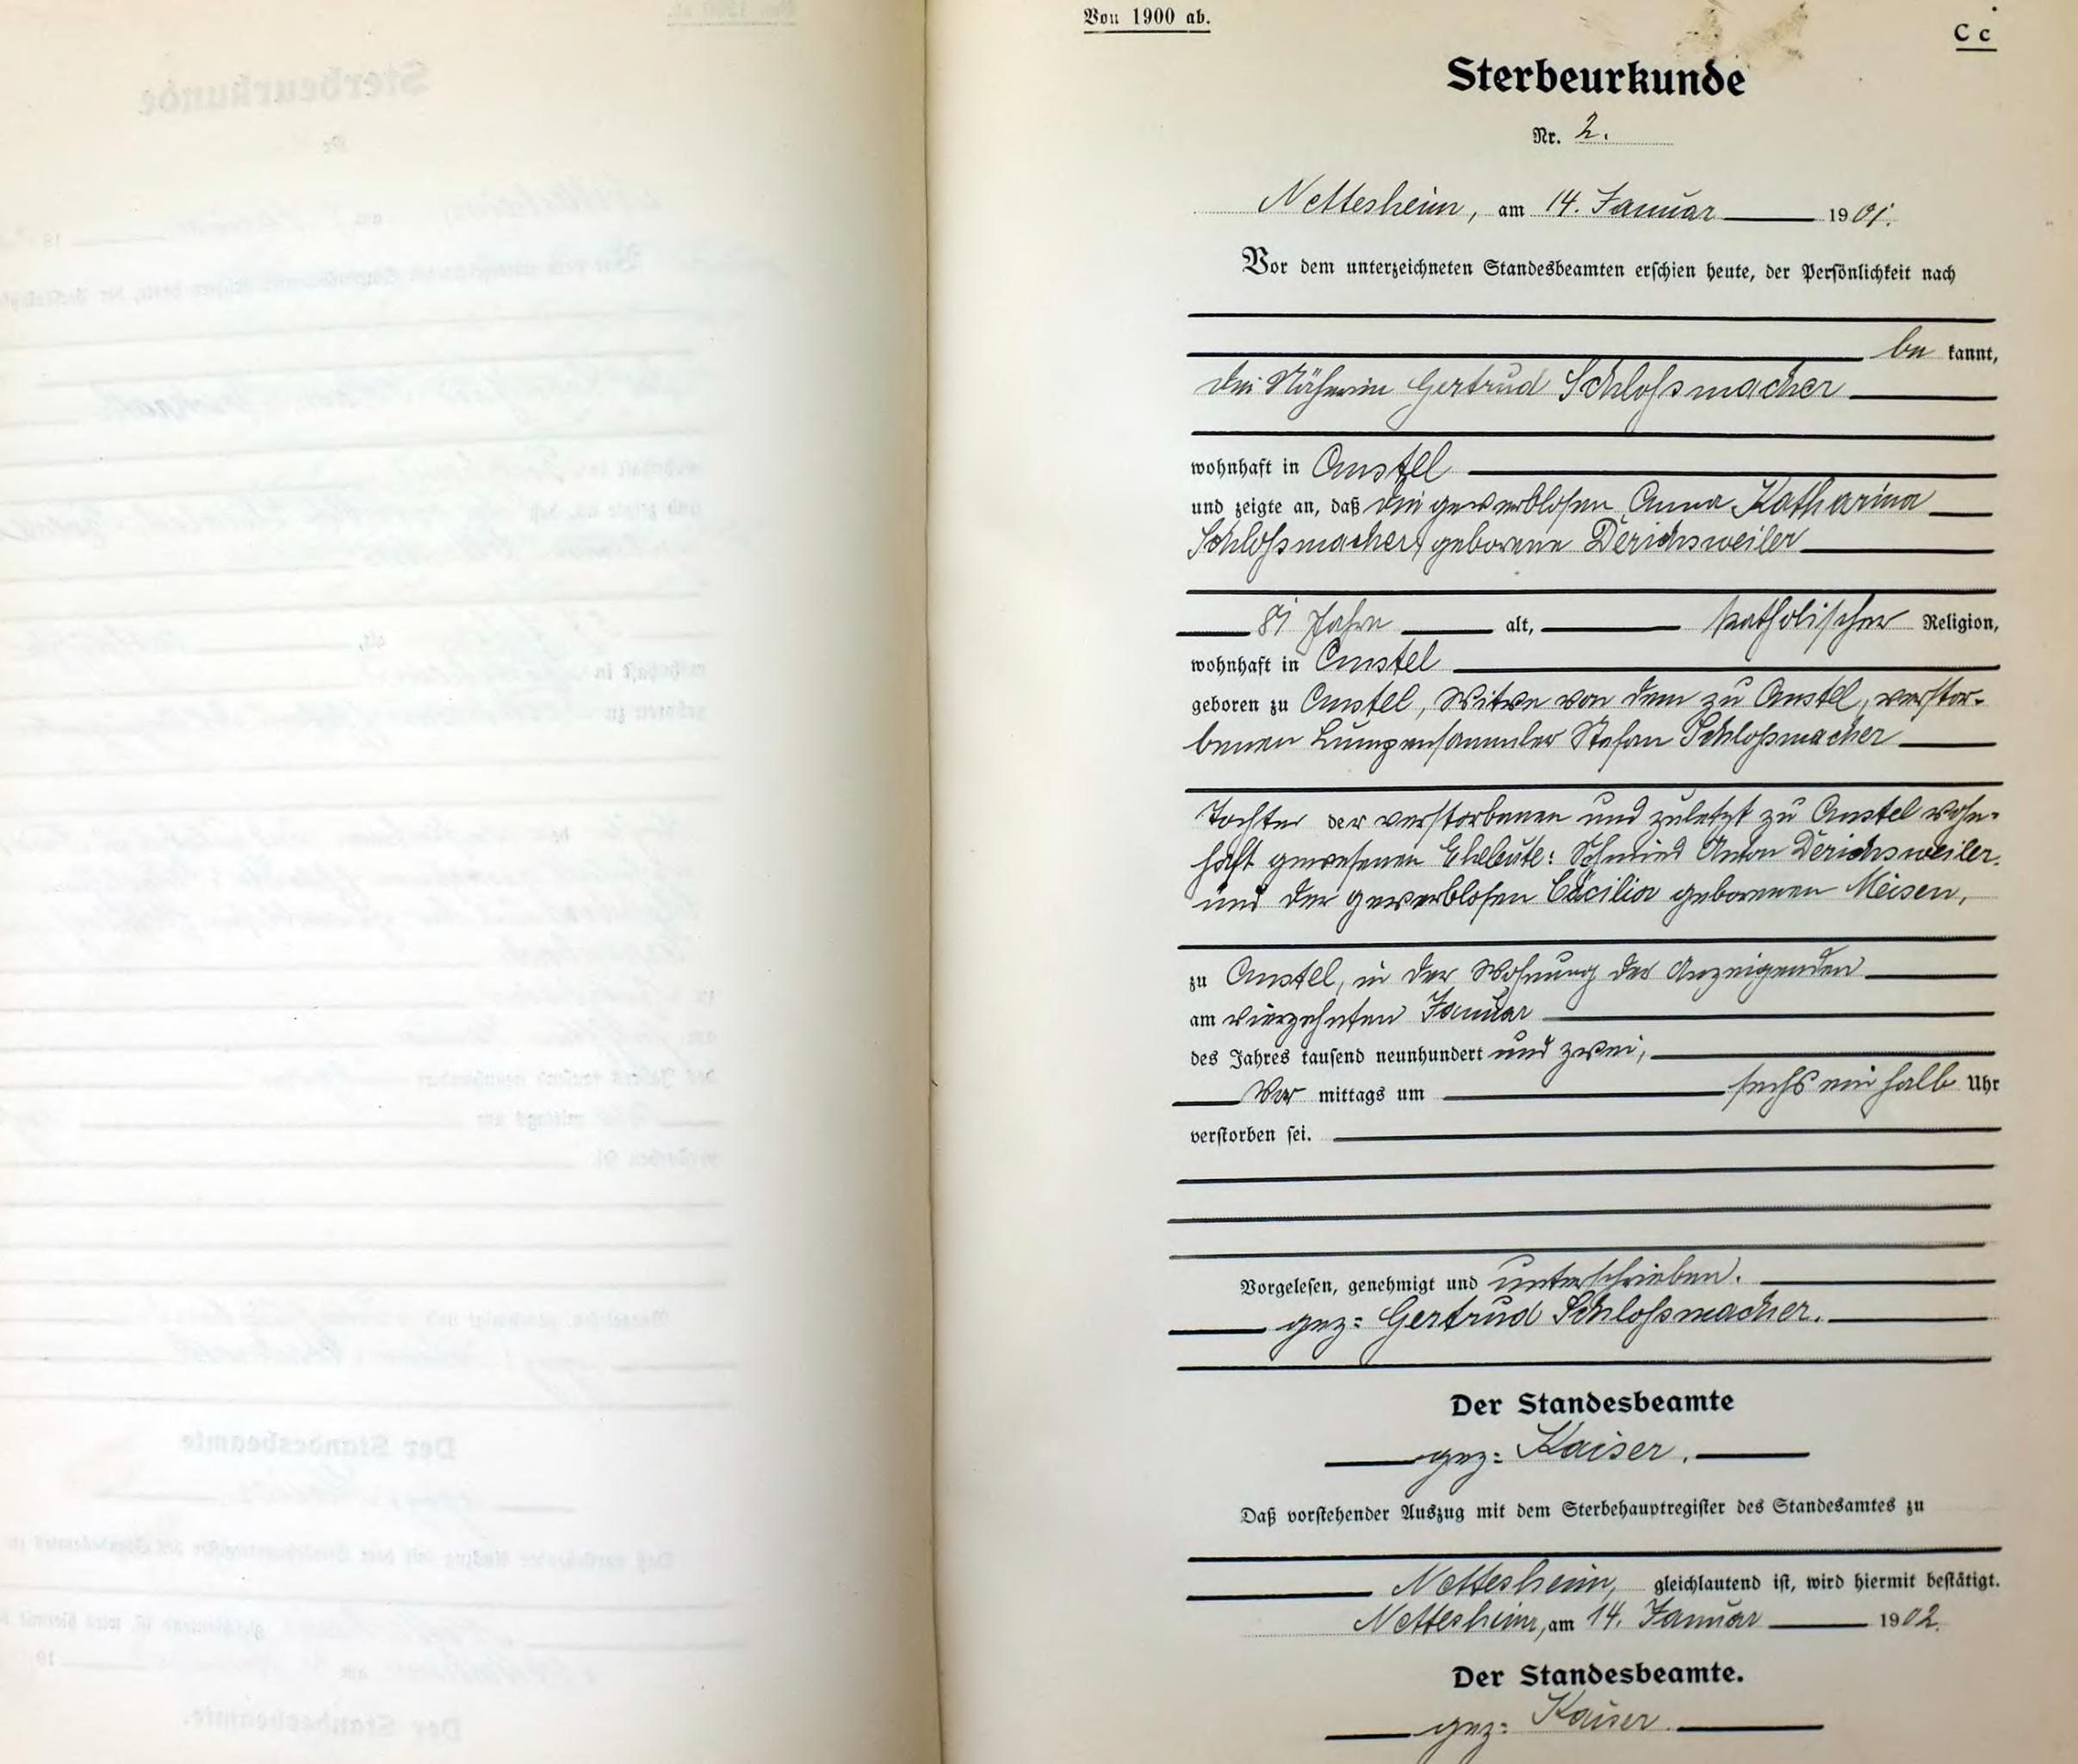 Von 1900 ab.
C c
Sterbeurkunde
Nr. 2.
Nettesheim, am 14. Januar 1901.
Vor dem unterzeichneten Standesbeamten erschien heute, der Persönlichkeit nach
be kannt,
die Näherin Gertrud Schloßmacher
wohnhaft in Anstel
und zeigte an, daß die gewerblosen Anna Katharina
Schloßmacher, geborene Derichsweiler
81 Jahre alt, katholischer Religion,
wohnhaft in Anstel
geboren zu Anstel, Witwe von dem zu Anstel, verstor-
benen Lumpensammler Stefan Schloßmacher
Tochter der verstorbenen und zuletzt zu Anstel wohn-
haft gewesenen Eheleute: Schmied Anton Derichsweiler
und der gewerblosen Cäcilia geborenen Meisen,
zu Anstel, in der Wohnung der Anzeigenden
am vierzehnten Januar
des Jahres tausend neunhundert und zwei,
Vor mittags um sechs ein halb Uhr
verstorben sei.
Vorgelesen, genehmigt und unterschrieben.
gez: Gertrud Schloßmacher.
Der Standesbeamte
gez: Kaiser.
Daß vorstehender Auszug mit dem Sterbehauptregister des Standesamtes zu
Nettesheim, gleichlautend ist, wird hiermit bestätigt.
Nettesheim, am 14. Januar 1902.
Der Standesbeamte.
gez: Kaiser.